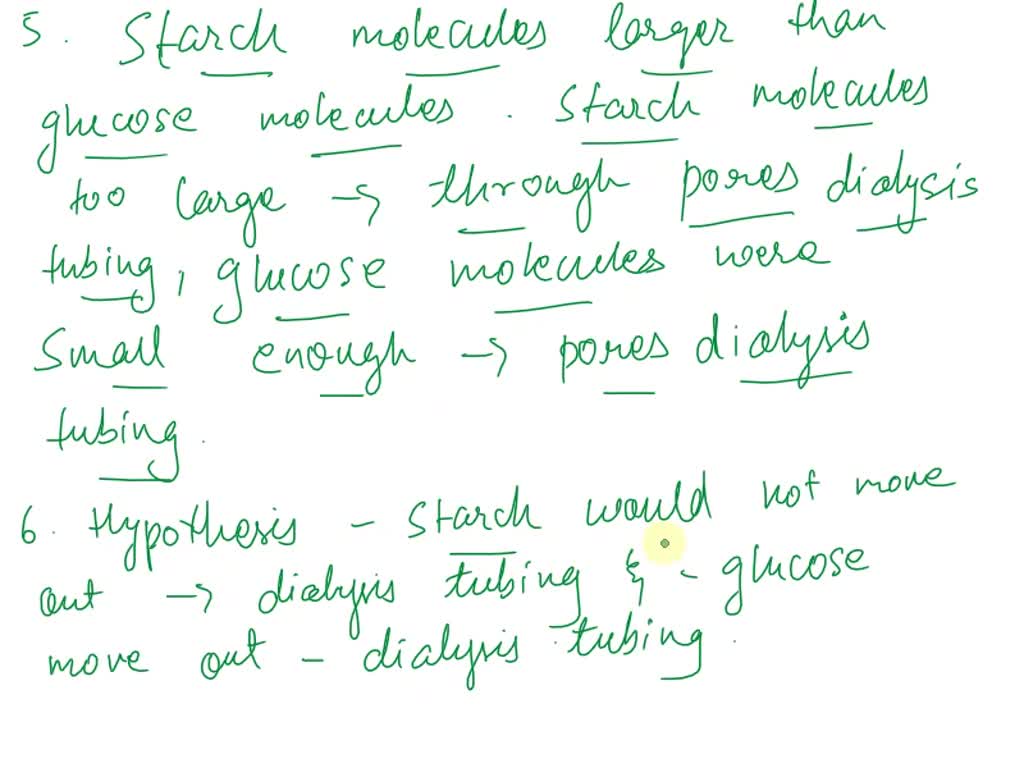 5. Starch molecules larger than
glucose molecules. Starch molecules
too large → through pores dialysis
tubing, glucose molecules were
small enough → pores dialysis
tubing.
6. Hypothesis - starch would not move
out → dialysis tubing & - glucose
move out - dialysis tubing.